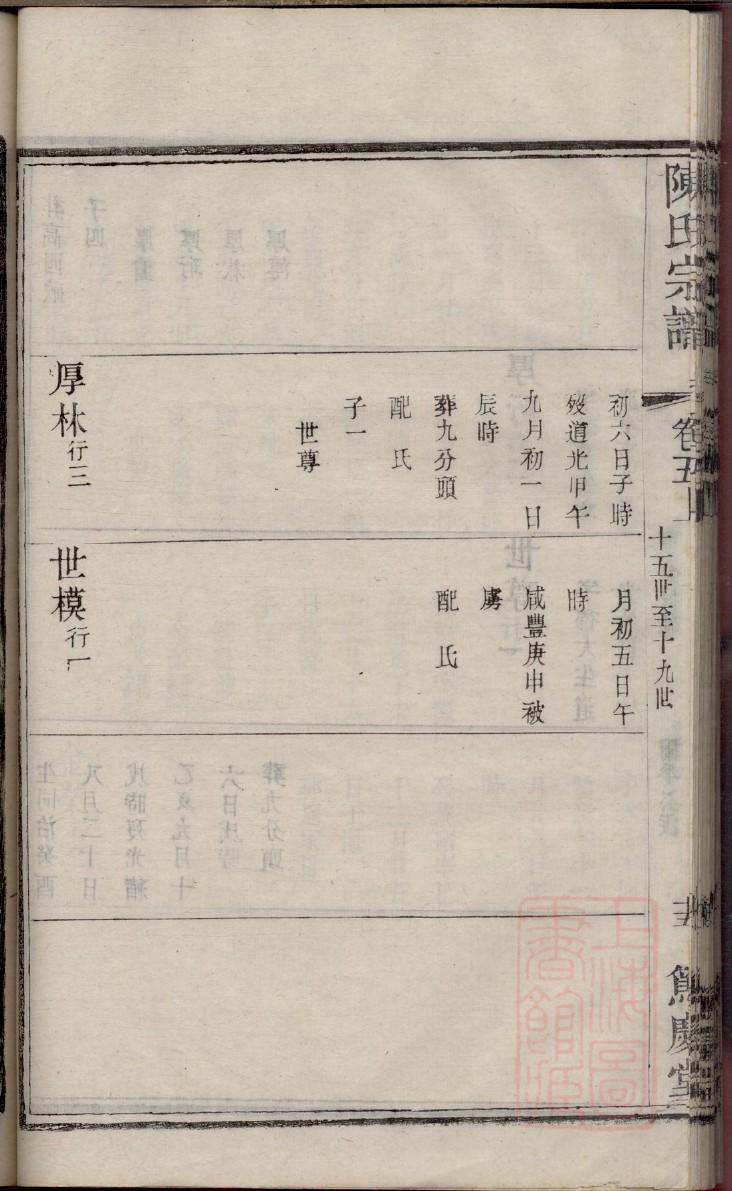 陳氏宗譜
卷五上
十五世至十九世
初六日子時
歿道光甲午
九月初一日
辰時
葬九分頭
配氏
子一
世尊
厚林行三
月初五日午
時
咸豐庚申被
虜
配氏
世模行一
上海圖
書館藏